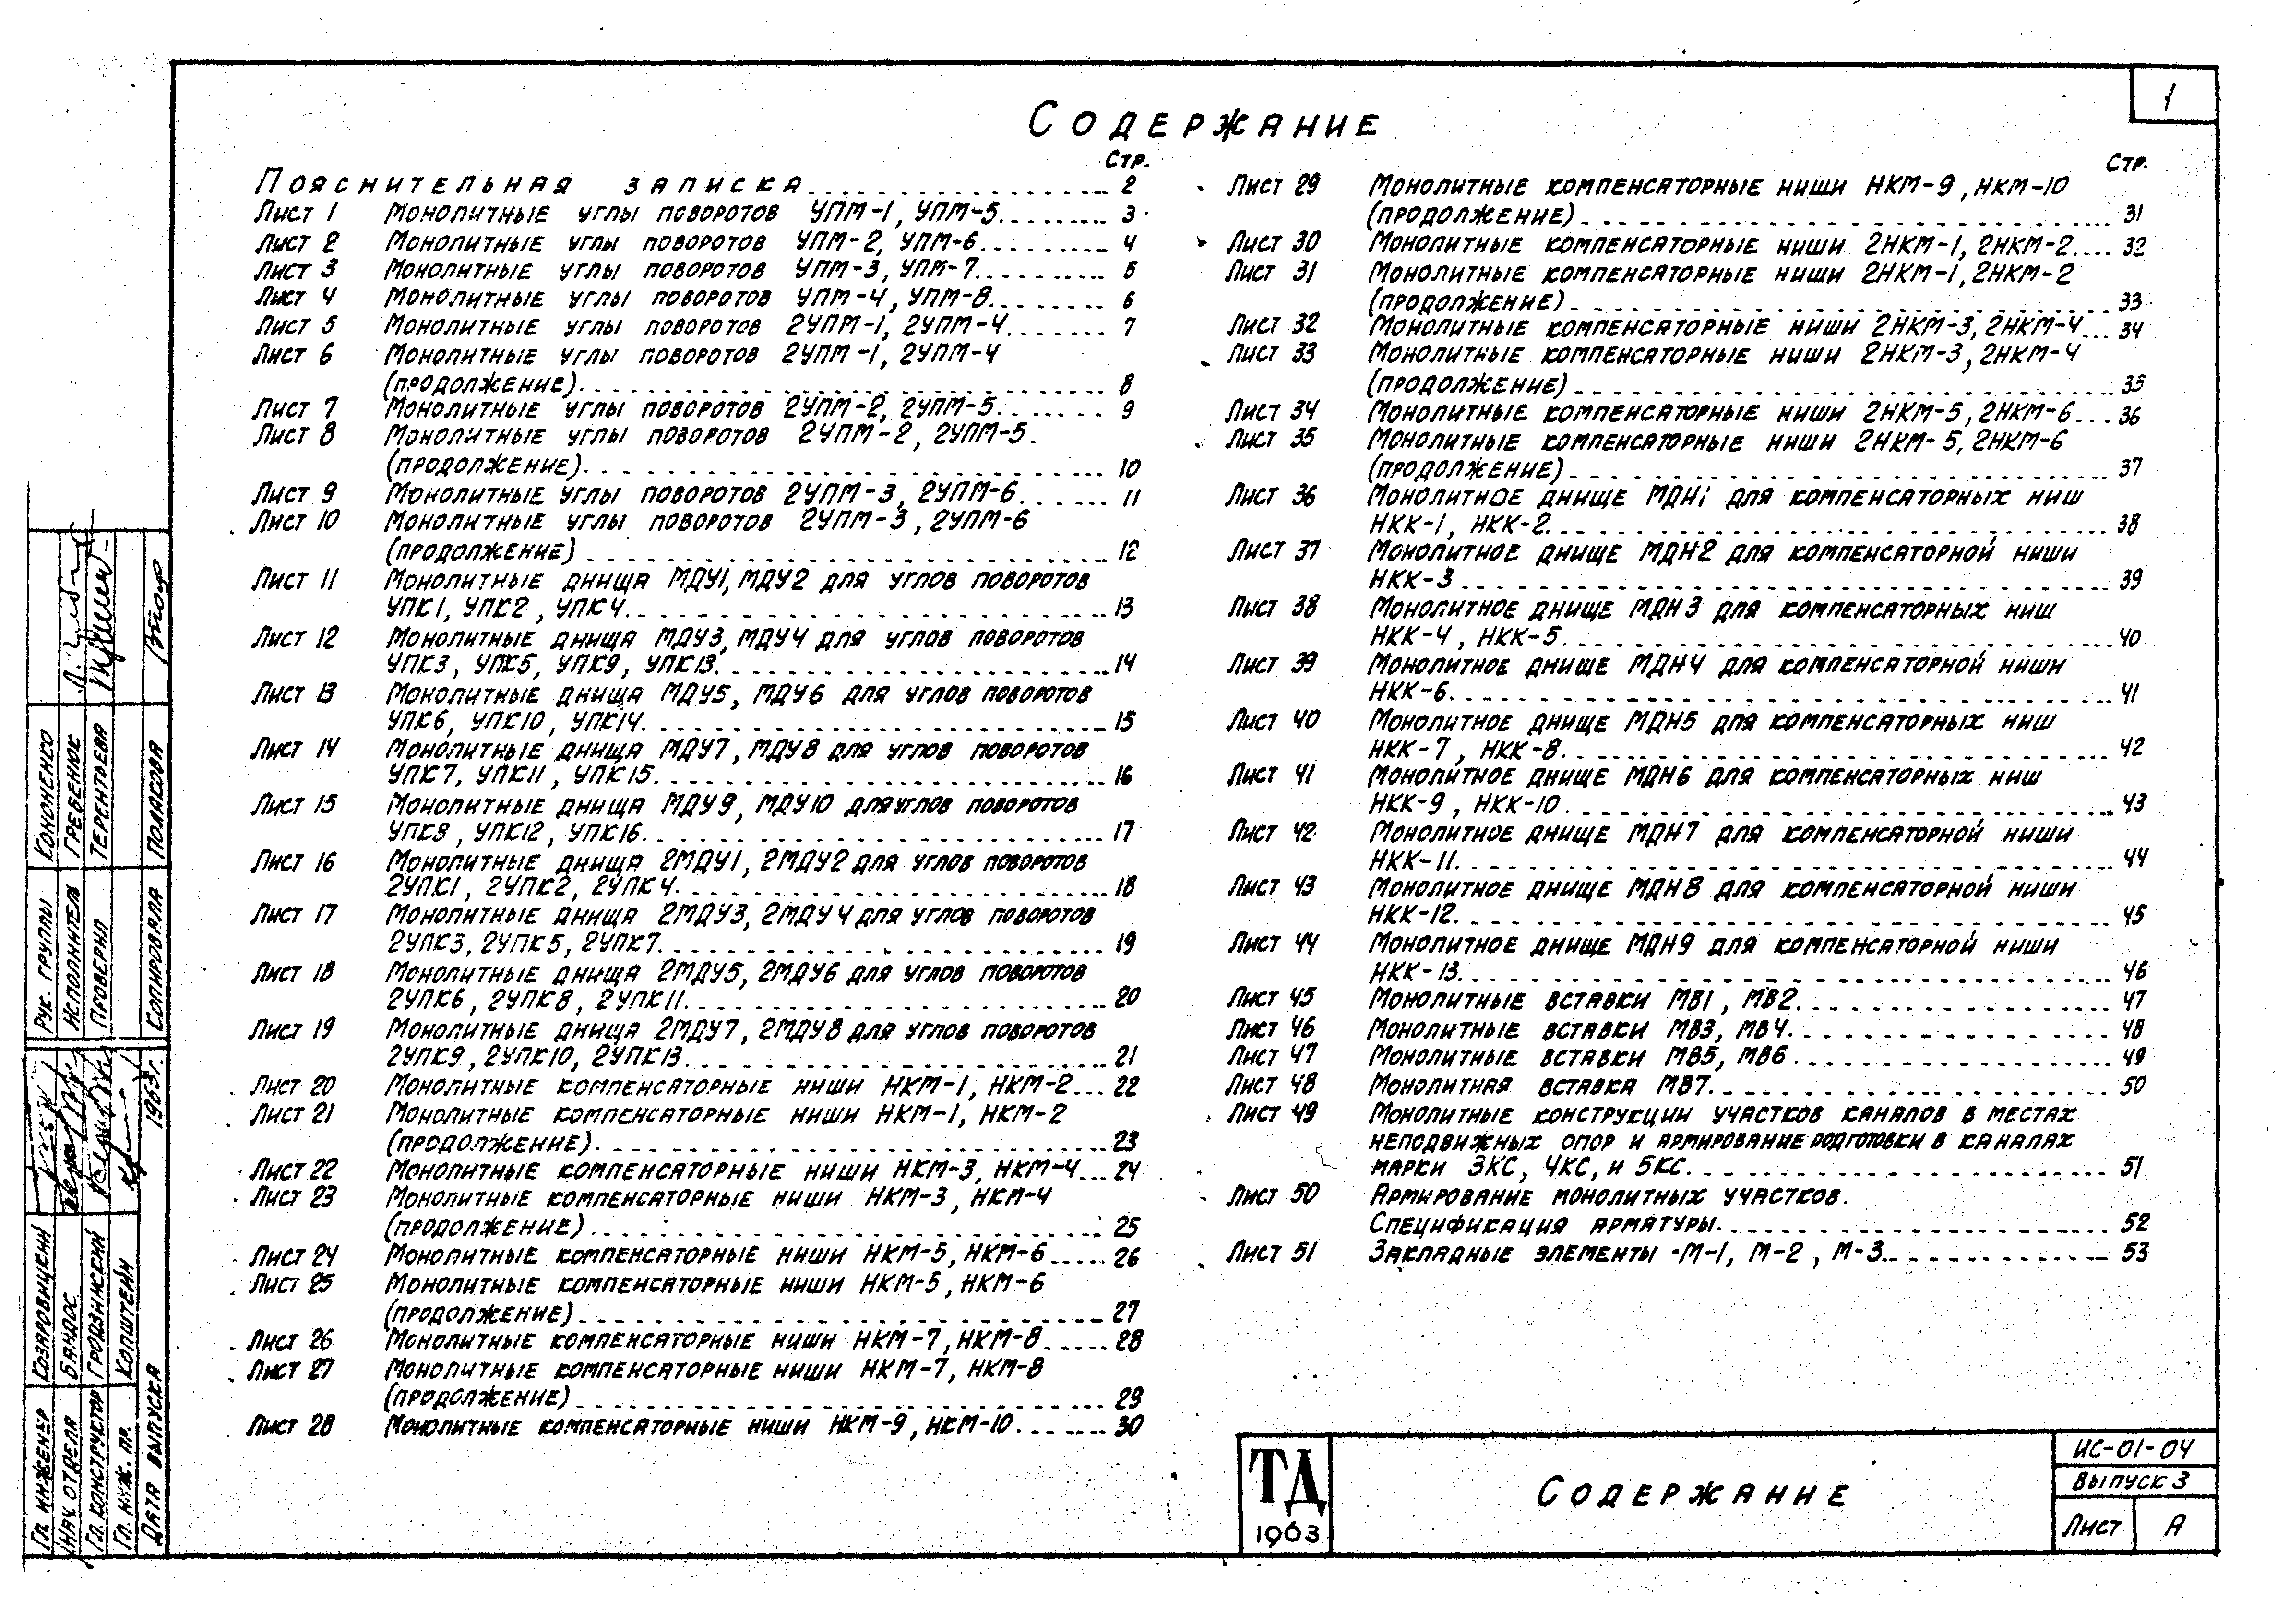 1
Содержание
Стр.
Пояснительная записка 2
Лист 1 Монолитные углы поворотов УПМ-1, УПМ-5 3
Лист 2 Монолитные углы поворотов УПМ-2, УПМ-6 4
Лист 3 Монолитные углы поворотов УПМ-3, УПМ-7 5
Лист 4 Монолитные углы поворотов УПМ-4, УПМ-8 6
Лист 5 Монолитные углы поворотов 2УПМ-1, 2УПМ-4 7
Лист 6 Монолитные углы поворотов 2УПМ-1, 2УПМ-4
(продолжение) 8
Лист 7 Монолитные углы поворотов 2УПМ-2, 2УПМ-5 9
Лист 8 Монолитные углы поворотов 2УПМ-2, 2УПМ-5.
(продолжение) 10
Лист 9 Монолитные углы поворотов 2УПМ-3, 2УПМ-6 11
Лист 10 Монолитные углы поворотов 2УПМ-3, 2УПМ-6
(продолжение) 12
Лист 11 Монолитные днища МДУ1, МДУ2 для углов поворотов
УПК1, УПК2, УПК4 13
Лист 12 Монолитные днища МДУ3, МДУ4 для углов поворотов
УПК3, УПК5, УПК9, УПК13 14
Лист 13 Монолитные днища МДУ5, МДУ6 для углов поворотов
УПК6, УПК10, УПК14 15
Лист 14 Монолитные днища МДУ7, МДУ8 для углов поворотов
УПК7, УПК11, УПК15 16
Лист 15 Монолитные днища МДУ9, МДУ10 для углов поворотов
УПК8, УПК12, УПК16 17
Лист 16 Монолитные днища 2МДУ1, 2МДУ2 для углов поворотов
2УПК1, 2УПК2, 2УПК4 18
Лист 17 Монолитные днища 2МДУ3, 2МДУ4 для углов поворотов
2УПК3, 2УПК5, 2УПК7 19
Лист 18 Монолитные днища 2МДУ5, 2МДУ6 для углов поворотов
2УПК6, 2УПК8, 2УПК11 20
Лист 19 Монолитные днища 2МДУ7, 2МДУ8 для углов поворотов
2УПК9, 2УПК10, 2УПК13 21
Лист 20 Монолитные компенсаторные ниши НКМ-1, НКМ-2 22
Лист 21 Монолитные компенсаторные ниши НКМ-1, НКМ-2
(продолжение) 23
Лист 22 Монолитные компенсаторные ниши НКМ-3, НКМ-4 24
Лист 23 Монолитные компенсаторные ниши НКМ-3, НКМ-4
(продолжение) 25
Лист 24 Монолитные компенсаторные ниши НКМ-5, НКМ-6 26
Лист 25 Монолитные компенсаторные ниши НКМ-5, НКМ-6
(продолжение) 27
Лист 26 Монолитные компенсаторные ниши НКМ-7, НКМ-8 28
Лист 27 Монолитные компенсаторные ниши НКМ-7, НКМ-8
(продолжение) 29
Лист 28 Монолитные компенсаторные ниши НКМ-9, НКМ-10 30
Стр.
Лист 29 Монолитные компенсаторные ниши НКМ-9, НКМ-10
(продолжение) 31
Лист 30 Монолитные компенсаторные ниши 2НКМ-1, 2НКМ-2 32
Лист 31 Монолитные компенсаторные ниши 2НКМ-1, 2НКМ-2
(продолжение) 33
Лист 32 Монолитные компенсаторные ниши 2НКМ-3, 2НКМ-4 34
Лист 33 Монолитные компенсаторные ниши 2НКМ-3, 2НКМ-4
(продолжение) 35
Лист 34 Монолитные компенсаторные ниши 2НКМ-5, 2НКМ-6 36
Лист 35 Монолитные компенсаторные ниши 2НКМ-5, 2НКМ-6
(продолжение) 37
Лист 36 Монолитное днище МДН1 для компенсаторных ниш
НКК-1, НКК-2 38
Лист 37 Монолитное днище МДН2 для компенсаторной ниши
НКК-3 39
Лист 38 Монолитное днище МДН3 для компенсаторных ниш
НКК-4, НКК-5 40
Лист 39 Монолитное днище МДН4 для компенсаторной ниши
НКК-6 41
Лист 40 Монолитное днище МДН5 для компенсаторных ниш
НКК-7, НКК-8 42
Лист 41 Монолитное днище МДН6 для компенсаторных ниш
НКК-9, НКК-10 43
Лист 42 Монолитное днище МДН7 для компенсаторной ниши
НКК-11 44
Лист 43 Монолитное днище МДН8 для компенсаторной ниши
НКК-12 45
Лист 44 Монолитное днище МДН9 для компенсаторной ниши
НКК-13 46
Лист 45 Монолитные вставки МВ1, МВ2 47
Лист 46 Монолитные вставки МВ3, МВ4 48
Лист 47 Монолитные вставки МВ5, МВ6 49
Лист 48 Монолитная вставка МВ7 50
Лист 49 Монолитные конструкции участков каналов в местах
неподвижных опор и армирование подготовки в каналах
марки 3КС, 4КС, и 5КС 51
Лист 50 Армирование монолитных участков.
Спецификация арматуры 52
Лист 51 Закладные элементы М-1, М-2, М-3 53
Рук. группы Кононенко
Исполнитель Гребенюк
Проверил Терентьева
Копировала Полякова
Гл. инженер Козаровицкий
Нач. отдела Бандос
Гл. конструктор Гродзинский
Гл. инж. пр. Копштейн
Дата выпуска 1963г.
ТД
1963
Содержание
ИС-01-04
Выпуск 3
Лист А